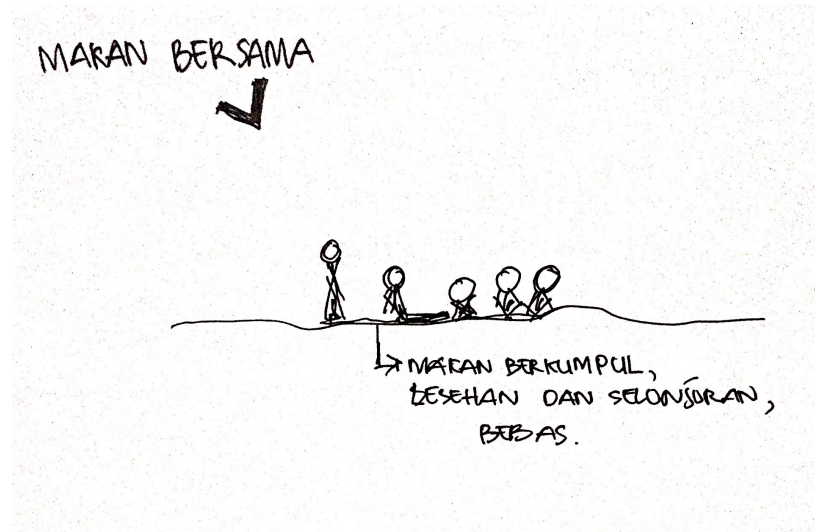 MAKAN BERSAMA
MAKAN BERKUMPUL,
LESEHAN DAN SELONJORAN,
BEBAS.